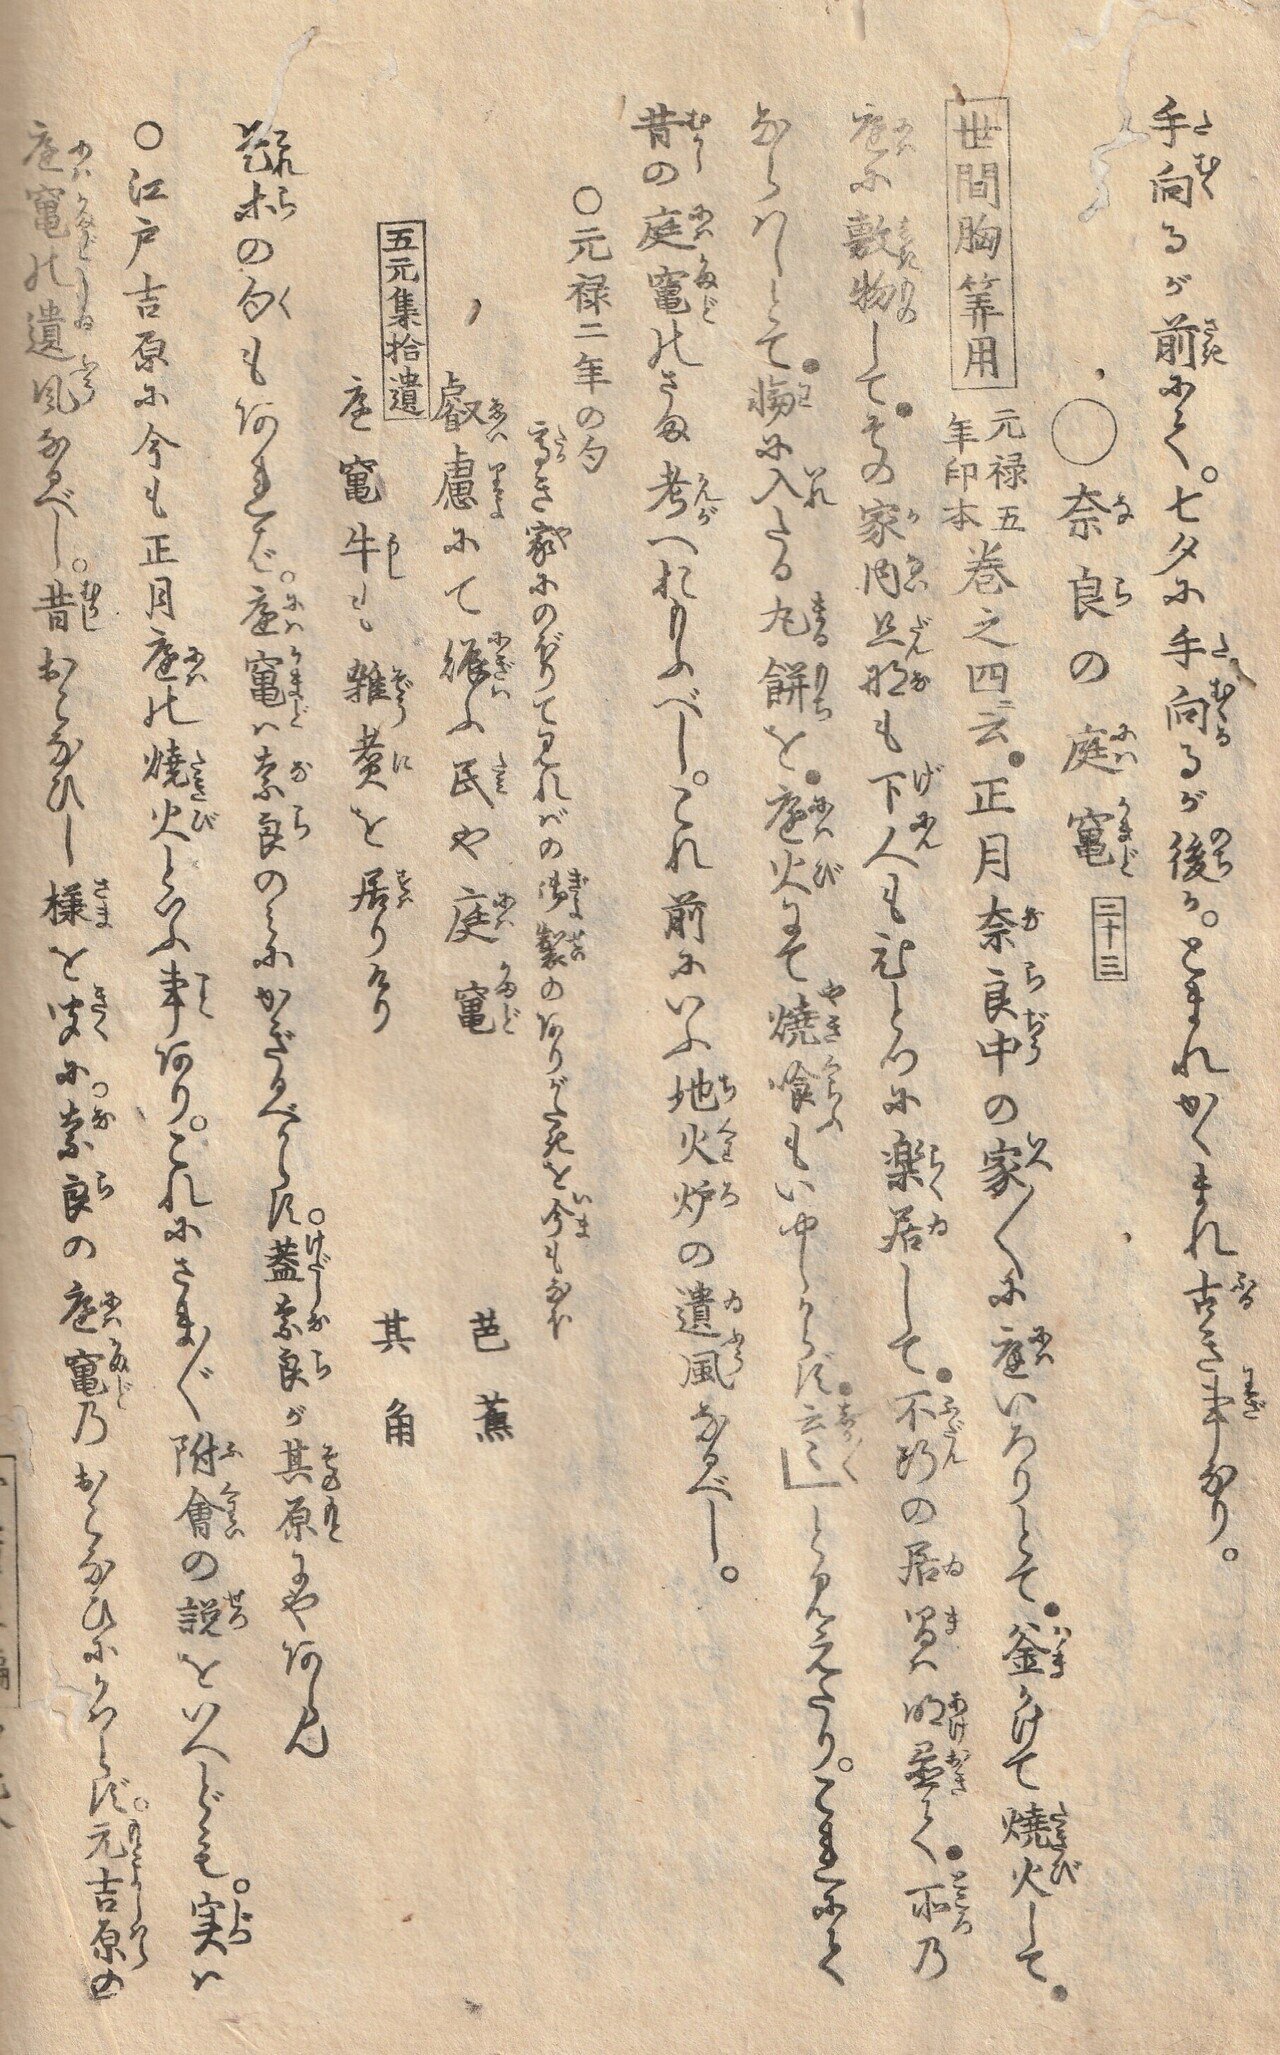 手向るが前にて。七夕に手向るが後か。とまれかくまれ古き事なり。
○奈良の庭竃 二十三
世間胸算用 元禄五年印本 巻之四云。正月奈良中の家〳〵に庭いろりとて。釜かけて焼火して。
庭に敷物して。その家内旦那も下人もひとつに楽居して。不断の居間は明置て。所の
ならはしとて。輪に入たる丸餅を。庭火にて焼喰もいやしからず。云々」と見えたり。これにて
昔の庭竃のさま考へおもふべし。これ前にいふ地火炉の遺風なるべし。
○元禄二年の句
高き家にのぼりて見ればの御製のありがたきを今もなほ
叡慮にて賑ふ民や庭竃 芭蕉
五元集拾遺 庭竃牛も雑煮を居りけり 其角
是等の句もあれば。庭竃は奈良のみにかぎるべからず。蓋奈良が其原にやあらん
○江戸吉原に今も正月庭の焼火といふ事あり。これにさま〴〵附會の説をいへども。実は
庭竃の遺風なるべし。昔おこなひし様を聞に奈良の庭竃乃おこなひにかはらず。元吉原の